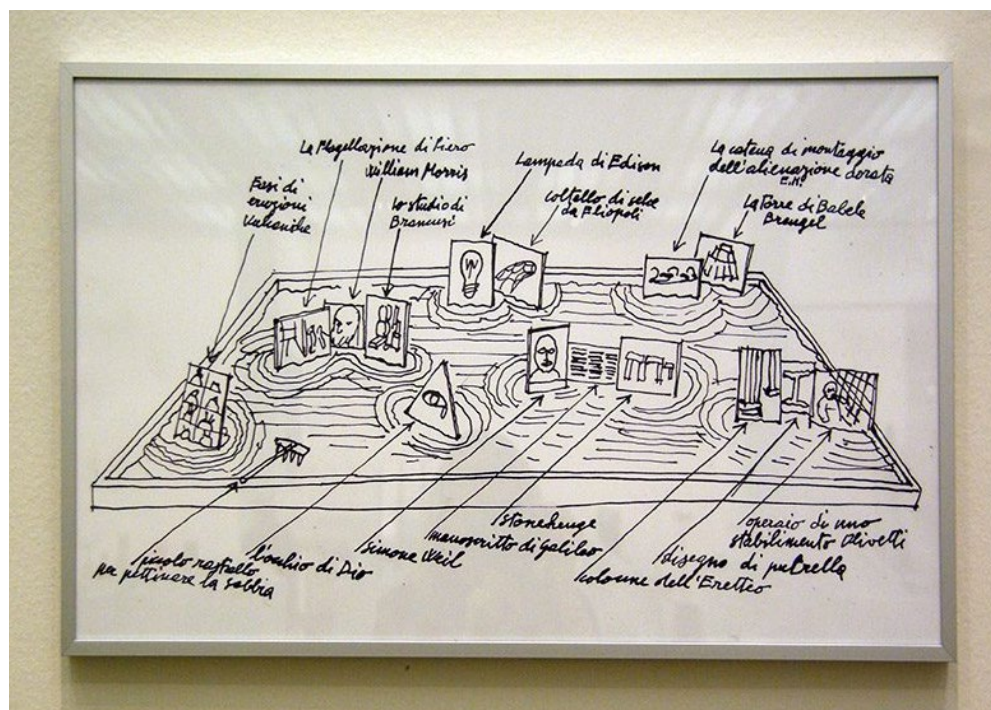 La Flagellazione di Piero
William Morris
lo studio di
Brancusi
Fasi di
eruzioni
vulcaniche
Lampada di Edison
coltello di selce
da Eliopoli
La catena di montaggio
dell'alienazione dorata
E.M.
La Torre di Babele
Breugel
piccolo rastrello
per pettinare la sabbia
l'occhio di Dio
Simone Weil
manoscritto di Galileo
Stonehenge
colonne dell'Eretteo
disegno di putrella
operaio di uno
stabilimento Olivetti